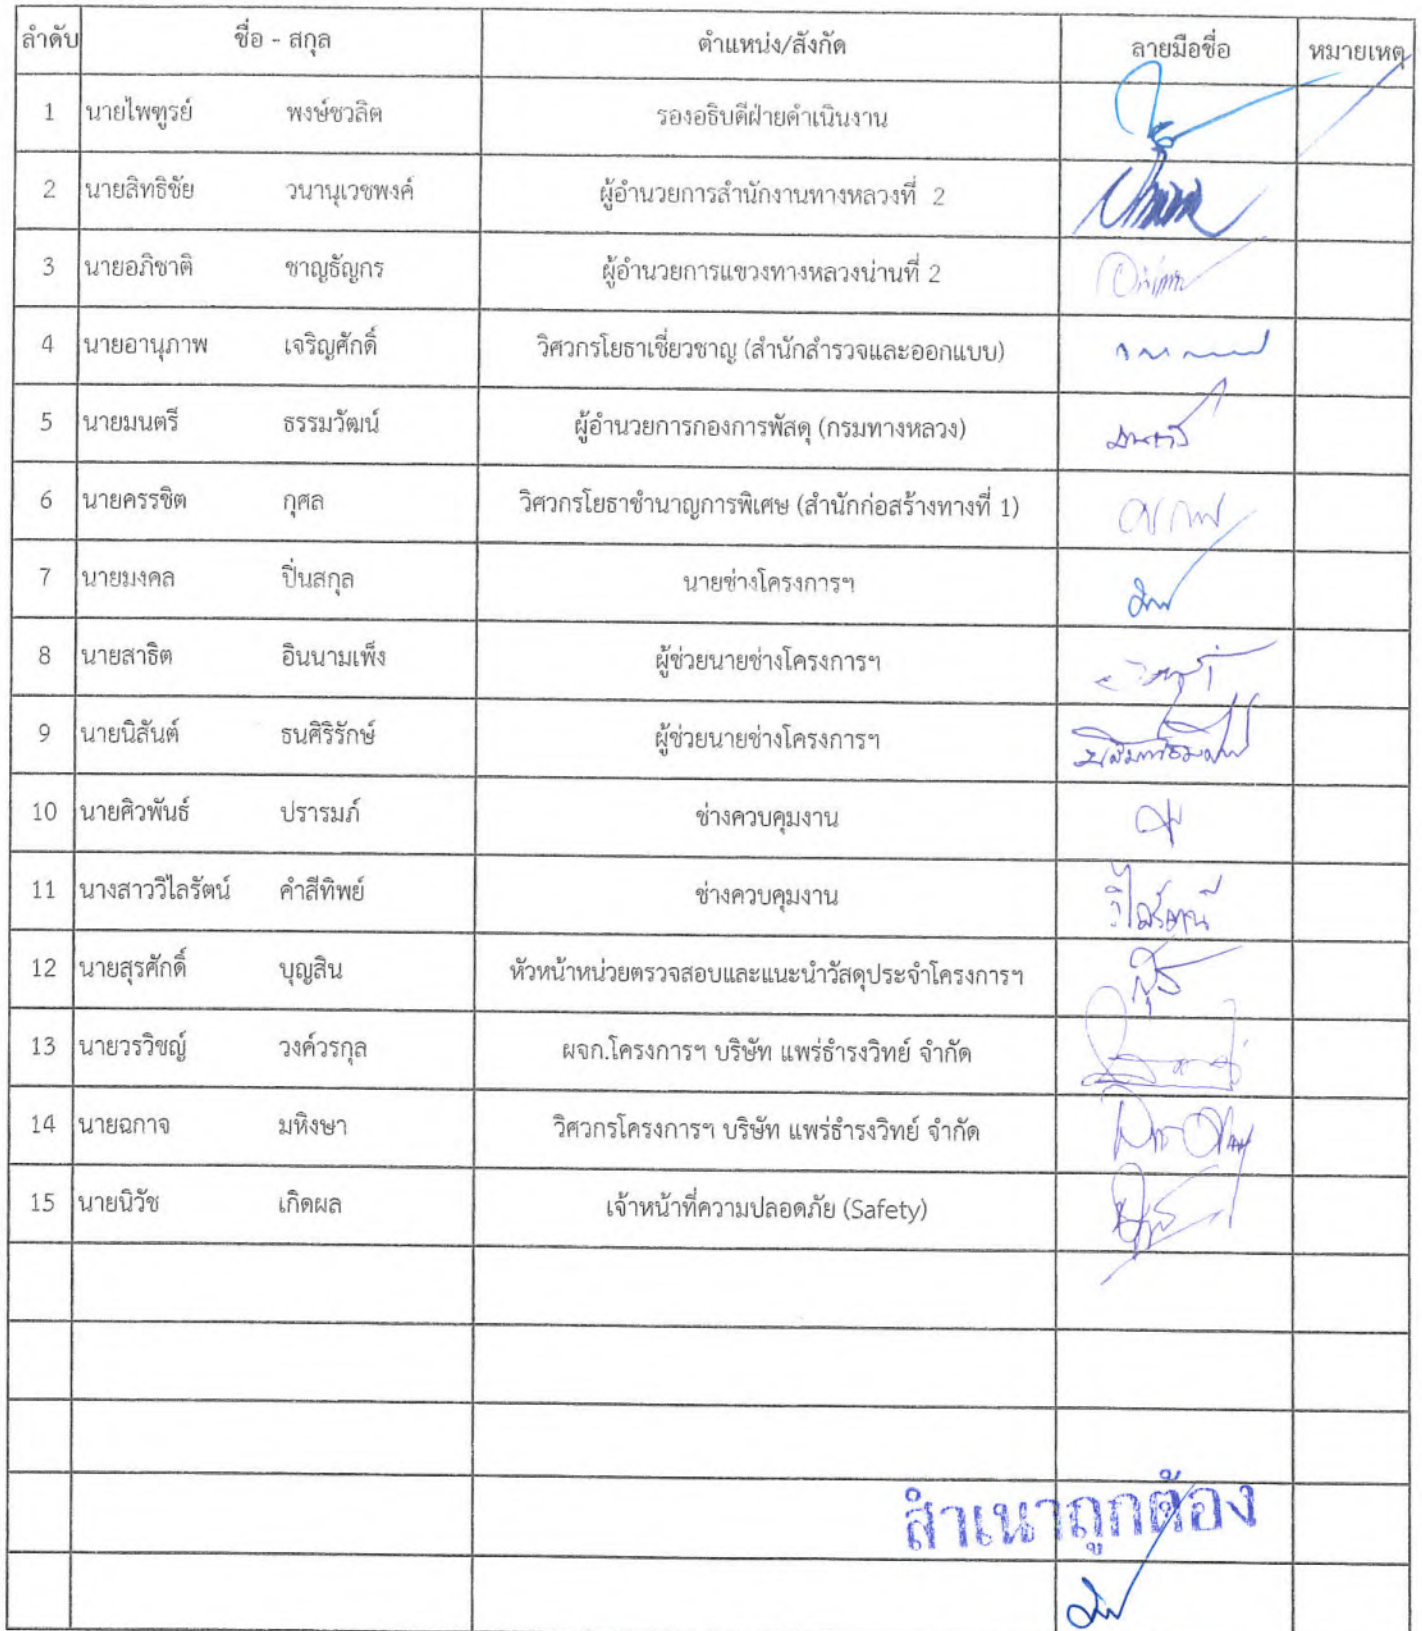 ลำดับ ชื่อ - สกุล ตำแหน่ง/สังกัด ลายมือชื่อ หมายเหตุ
1 นายไพฑูรย์ พงษ์ชวลิต รองอธิบดีฝ่ายดำเนินงาน
2 นายสิทธิชัย วนานุเวชพงค์ ผู้อำนวยการสำนักงานทางหลวงที่ 2
3 นายอภิชาติ ชาญธัญกร ผู้อำนวยการแขวงทางหลวงน่านที่ 2
4 นายอานุภาพ เจริญศักดิ์ วิศวกรโยธาเชี่ยวชาญ (สำนักสำรวจและออกแบบ)
5 นายมนตรี ธรรมวัฒน์ ผู้อำนวยการกองการพัสดุ (กรมทางหลวง) มนตรี
6 นายครรชิต กุศล วิศวกรโยธาชำนาญการพิเศษ (สำนักก่อสร้างทางที่ 1)
7 นายมงคล ปิ่นสกุล นายช่างโครงการฯ
8 นายสาธิต อินนามเพ็ง ผู้ช่วยนายช่างโครงการฯ
9 นายนิสันต์ ธนศิริรักษ์ ผู้ช่วยนายช่างโครงการฯ
10 นายศิวพันธ์ ปรารมภ์ ช่างควบคุมงาน
11 นางสาววิไลรัตน์ คำสีทิพย์ ช่างควบคุมงาน
12 นายสุรศักดิ์ บุญสิน หัวหน้าหน่วยตรวจสอบและแนะนำวัสดุประจำโครงการฯ
13 นายวรวิชญ์ วงค์วรกุล ผจก.โครงการฯ บริษัท แพร่ธำรงวิทย์ จำกัด
14 นายฉกาจ มหิงษา วิศวกรโครงการฯ บริษัท แพร่ธำรงวิทย์ จำกัด
15 นายนิวัช เกิดผล เจ้าหน้าที่ความปลอดภัย (Safety)
สำเนาถูกต้อง